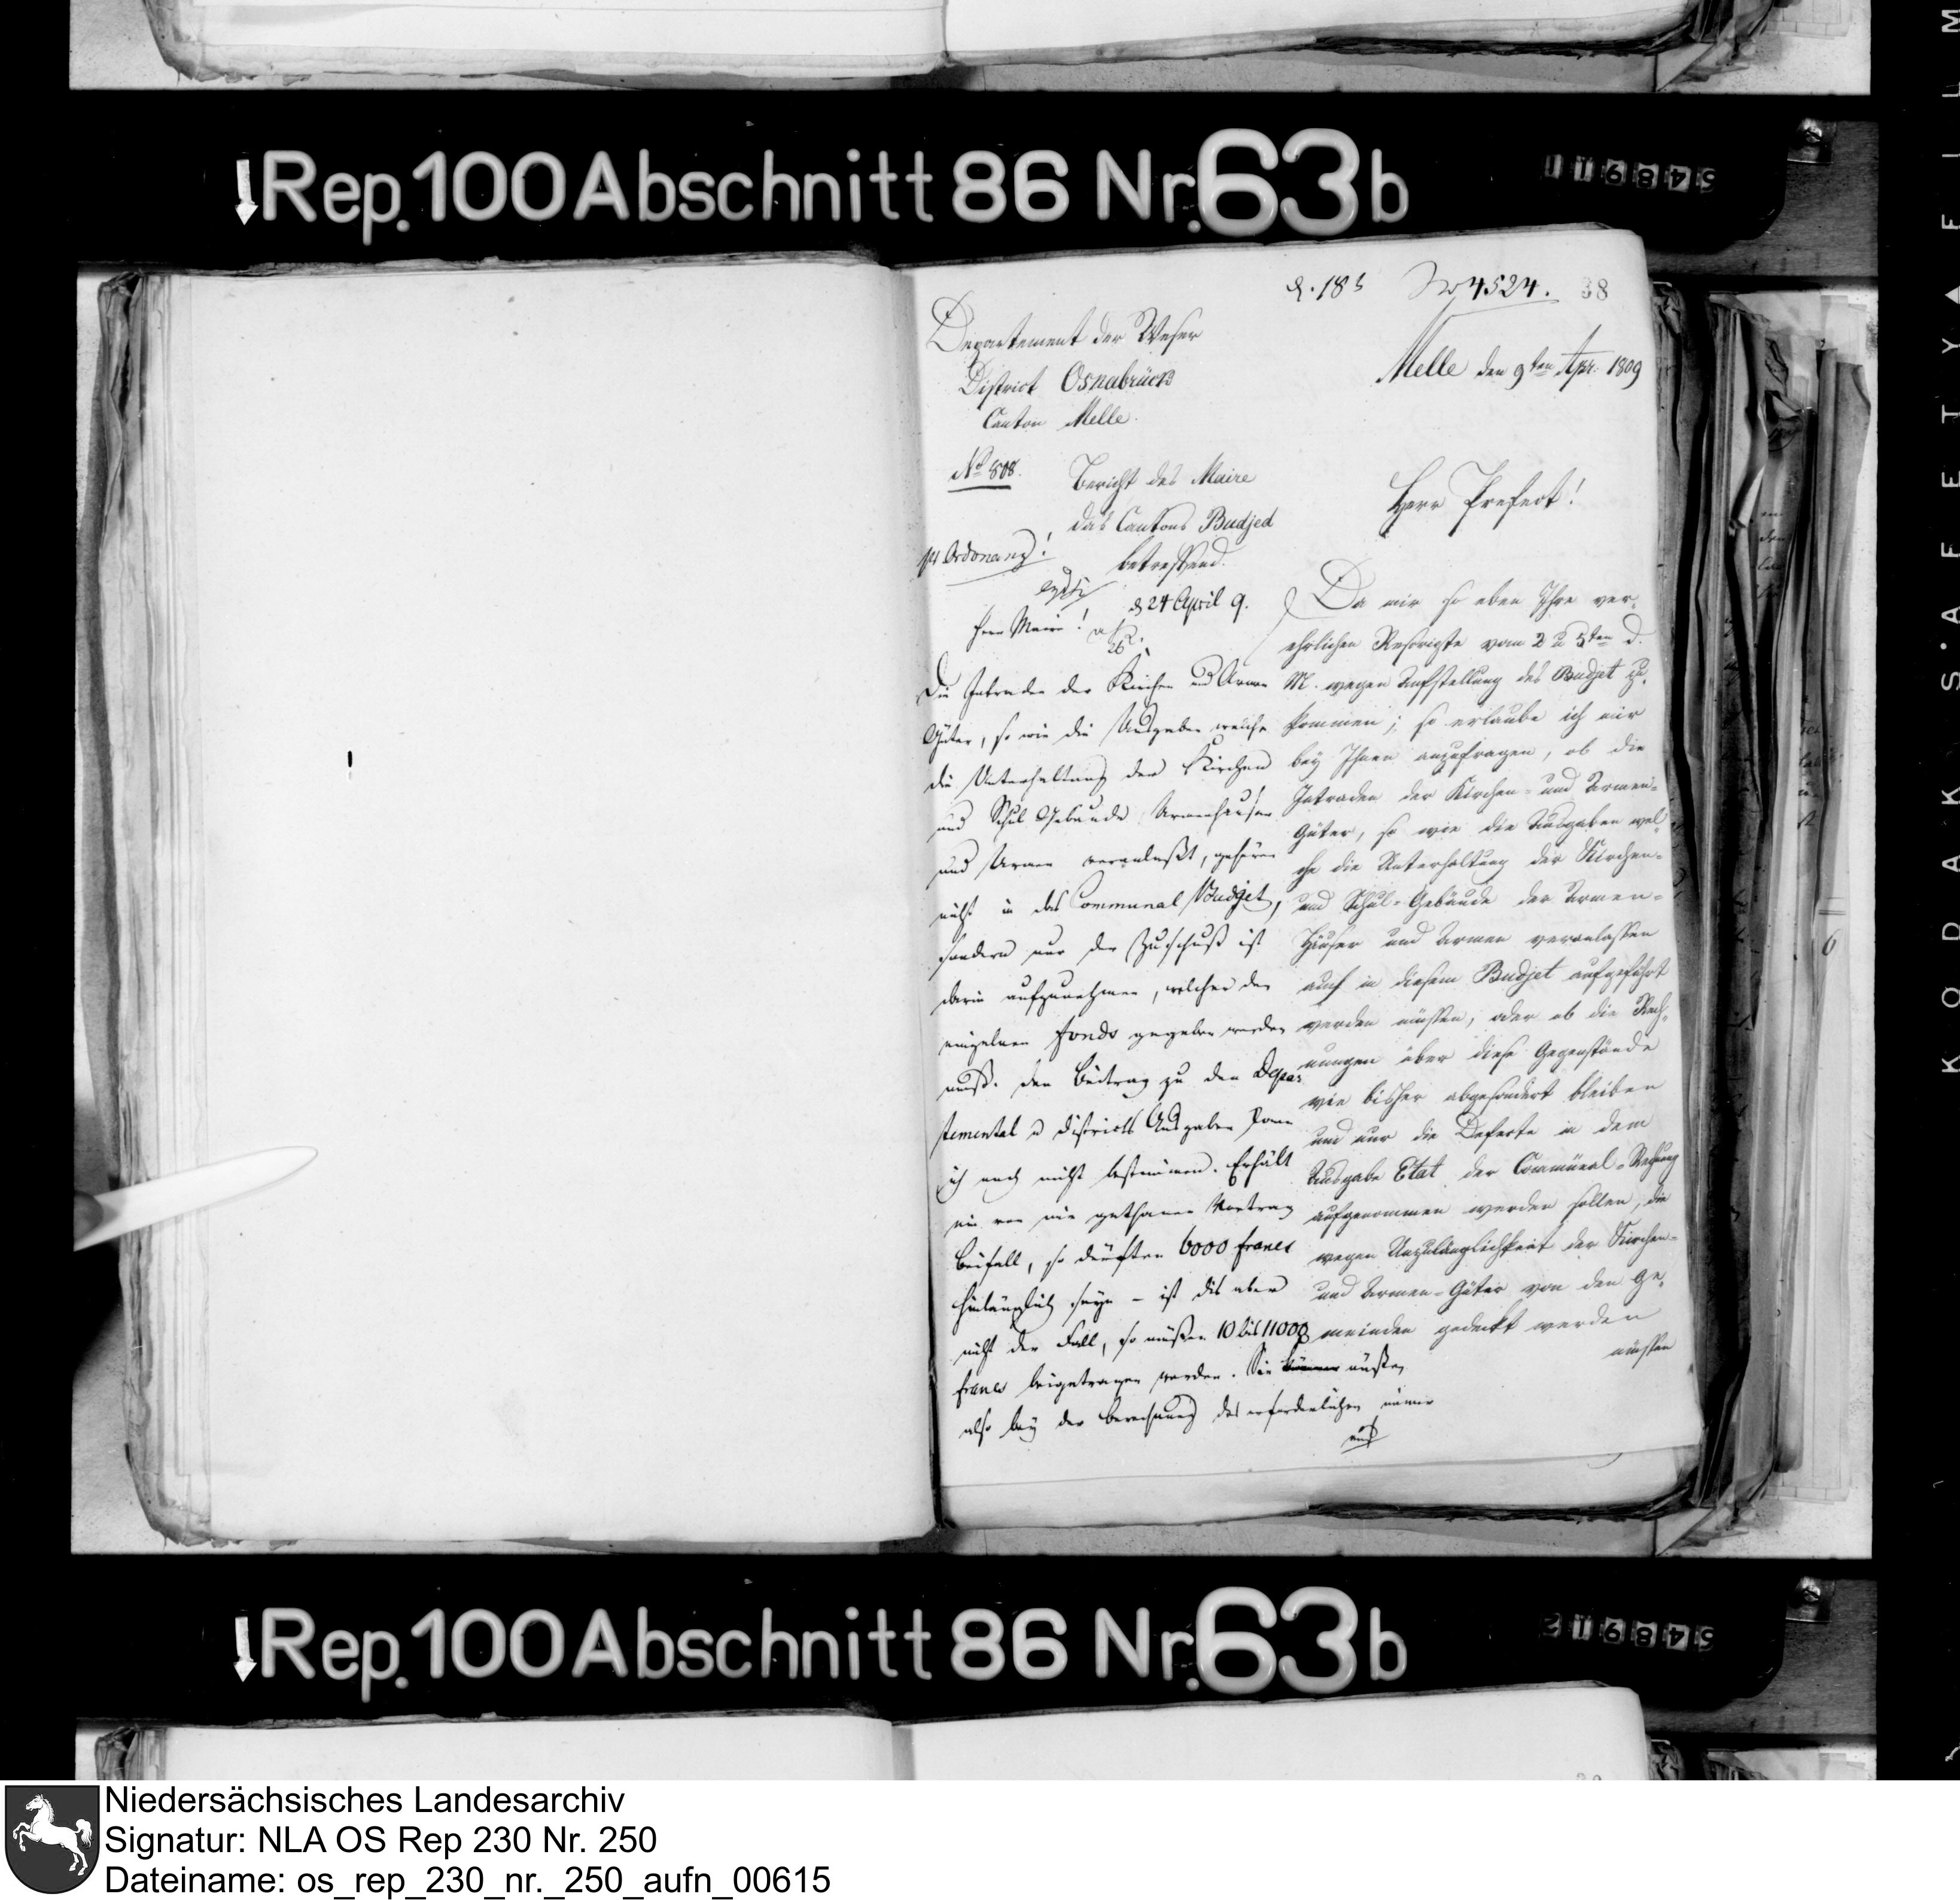 ↓Rep.100 Abschnitt 86 Nr.63b
548911
No 4524. 38
Departement der Weser
District Osnabrück
Canton Melle.
Melle den 9ten Apr. 1809
No 808.
Bericht des Maire
das Cantons Budjed
betreffend.
Herr Prefect!
pr Ordonanz!
d 24 April 9.
Herr Maire!
Die Intraden der Kirchen und Armen
Güter, so wie die Ausgaben welche
die Unterhaltung der Kirchen
und Schul Gebäude, Armenhäuser
und Armen veranlaßt, gehören
nicht in das Communal Budget,
sondern nur der Zuschuß ist
darin aufzunehmen, welcher den
einzelnen fonds gegeben werden
muß. Den Beitrag zu den Depar-
temental u districts Ausgaben kann
ich noch nicht bestimmen. Erhält
ein von mir gethaner Vortrag
Beifall, so dürften 6000 francs
hinlänglich seyn – ist dis aber
nicht der Fall, so müßen 10 bis 11000
francs beigetragen werden. Sie müßen
also bey der Berechnung des erforderlichen immer
Da mir so eben Ihre ver-
ehrlichen Rescripte vom 2 u 5ten d.
M. wegen Aufstellung des Budjet zu-
kommen; so erlaube ich mir
bey Ihnen anzufragen, ob die
Intraden der Kirchen- und Armen-
Güter, so wie die Ausgaben wel-
che die Unterhaltung der Kirchen-
und Schul-Gebäude der Armen-
Häuser und Armen veranlassen
auch in diesem Budjet aufgeführt
werden müssen, oder ob die Rech-
nungen über diese Gegenstände
wie bisher abgesondert bleiben
und nur die Defecte in dem
Ausgabe Etat der Communal-Rechnung
aufgenommen werden sollen, die
wegen Unzulänglichkeit der Kirchen-
und Armen-Güter von den Ge-
meinden gedeckt werden
müssen
↓Rep.100 Abschnitt 86 Nr.63b
548912
KODAK S'AFETY FILM
Niedersächsisches Landesarchiv
Signatur: NLA OS Rep 230 Nr. 250
Dateiname: os_rep_230_nr._250_aufn_00615